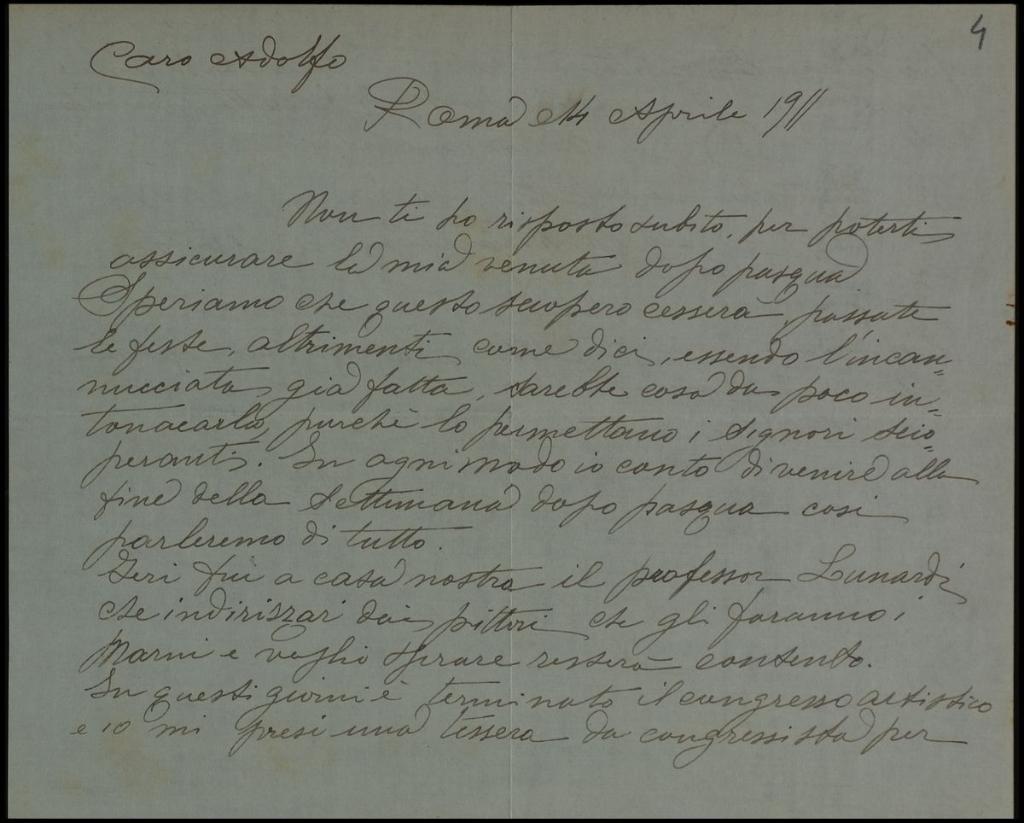 4
Caro Adolfo
Roma 14 Aprile 1911
Non ti ho risposto subito, per poterti
assicurare la mia venuta dopo pasqua
Speriamo che questo sciopero cesserà, passate
le feste, altrimenti come dici, essendo l'incan=
nucciata già fatta, sarebbe cosa da poco in=
tonacarla, purchè lo permettano i Signori scio=
peranti. In ogni modo io conto di venire alla
fine della Settimana dopo pasqua così
parleremo di tutto.
Ieri fui a casa nostra il professor Lunardi
che indirizzai dai pittori che gli faranno i
Marmi e voglio sperare resterà contento.
In questi giorni è terminato il congresso artistico
e io mi presi una tessera da congressista per